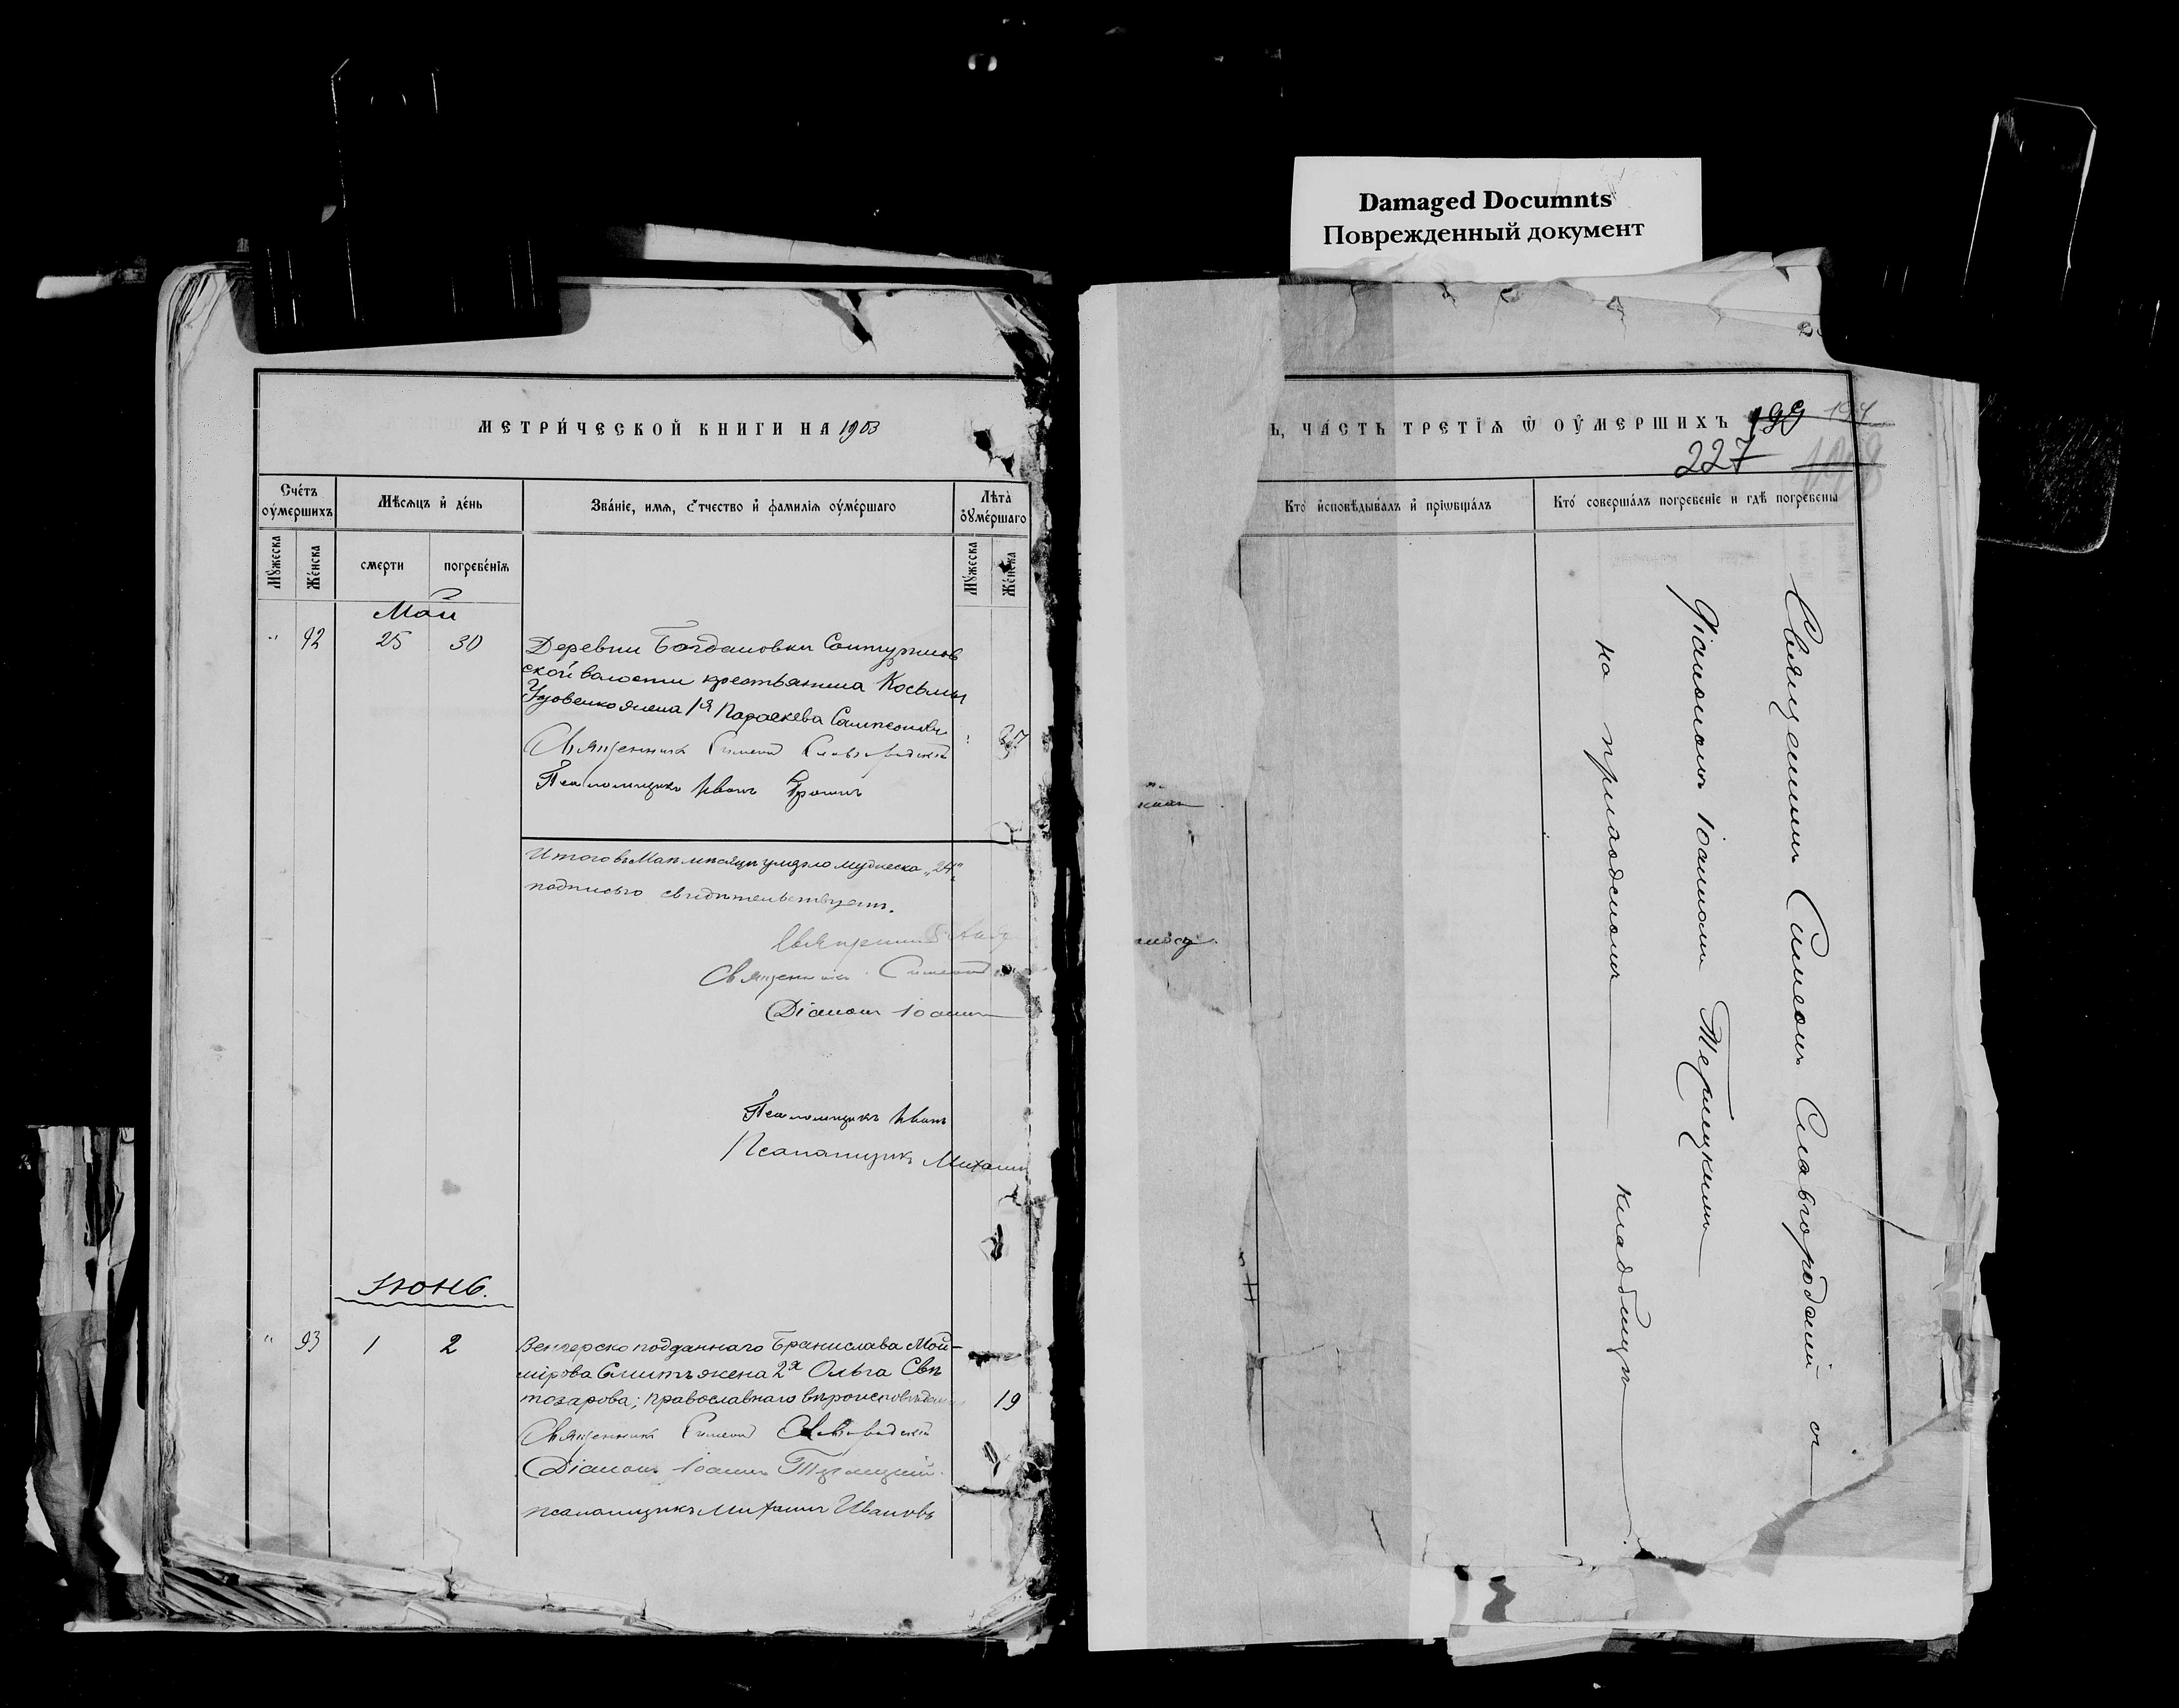 Damaged Documnts
Поврежденный документ
МЕТРИ́ЧЕСКОЙ КНИГИ НА 1903
Сче́тъ оу҆ме́ршихъ
Мѣ́сѧцъ и҆ де́нь
Зва́нїе, имѧ, ѻ҆́тчество и҆ фами́лїѧ оу҆ме́ршаго
Лѣта̀ оу҆ме́ршаго
Мꙋ́жеска
Же́нска
сме́рти
погребе́нїѧ
Мꙋ́жеска
Же́нска
Май
" 92 25 30
Деревни Богдановки
ской волости крестьянина Косьмы
жена 1я Параскева
Священникъ Симеонъ Славгородскій
27
Псаломщикъ Иванъ
Итого въ Маѣ мѣсяцѣ умерло мужеска „24"
подписью свидѣтельствуемъ.
Священникъ
Священникъ Симеонъ
Діаконъ Іоаннъ
Псаломщикъ Иванъ
Псаломщикъ Михаилъ
Июнь.
" 93 1 2
Венгерско подданнаго Бранислава Мой-
мірова жена 2я Ольга Свѣ
тозарова; православнаго вѣроисповѣдан
19
Священникъ Симеонъ Славгородскій
Діаконъ Іоаннъ Терлецкій
псаломщикъ Михаилъ Ивановъ
Ъ, ЧА́СТЬ ТРЕ́ТЇѦ Ѡ҆ ОУ҆МЕ́РШИХЪ
199
194
227
Кто̀ и҆сповѣ́дывалъ и҆ прїѡбща́лъ
Кто̀ соверша́лъ погребе́нїе и гдѣ̀ погребены̀
Священникъ Симеонъ Славгородскій съ
Діакономъ Іоанномъ Терлецкимъ
на приходскомъ кладбищѣ